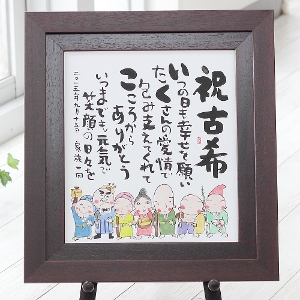 祝古希
いつの日も幸せを願い
たくさんの愛情で
包み支えてくれて
こころから
ありがとう
いつまでも元気で
笑顔の日々を
家族一同